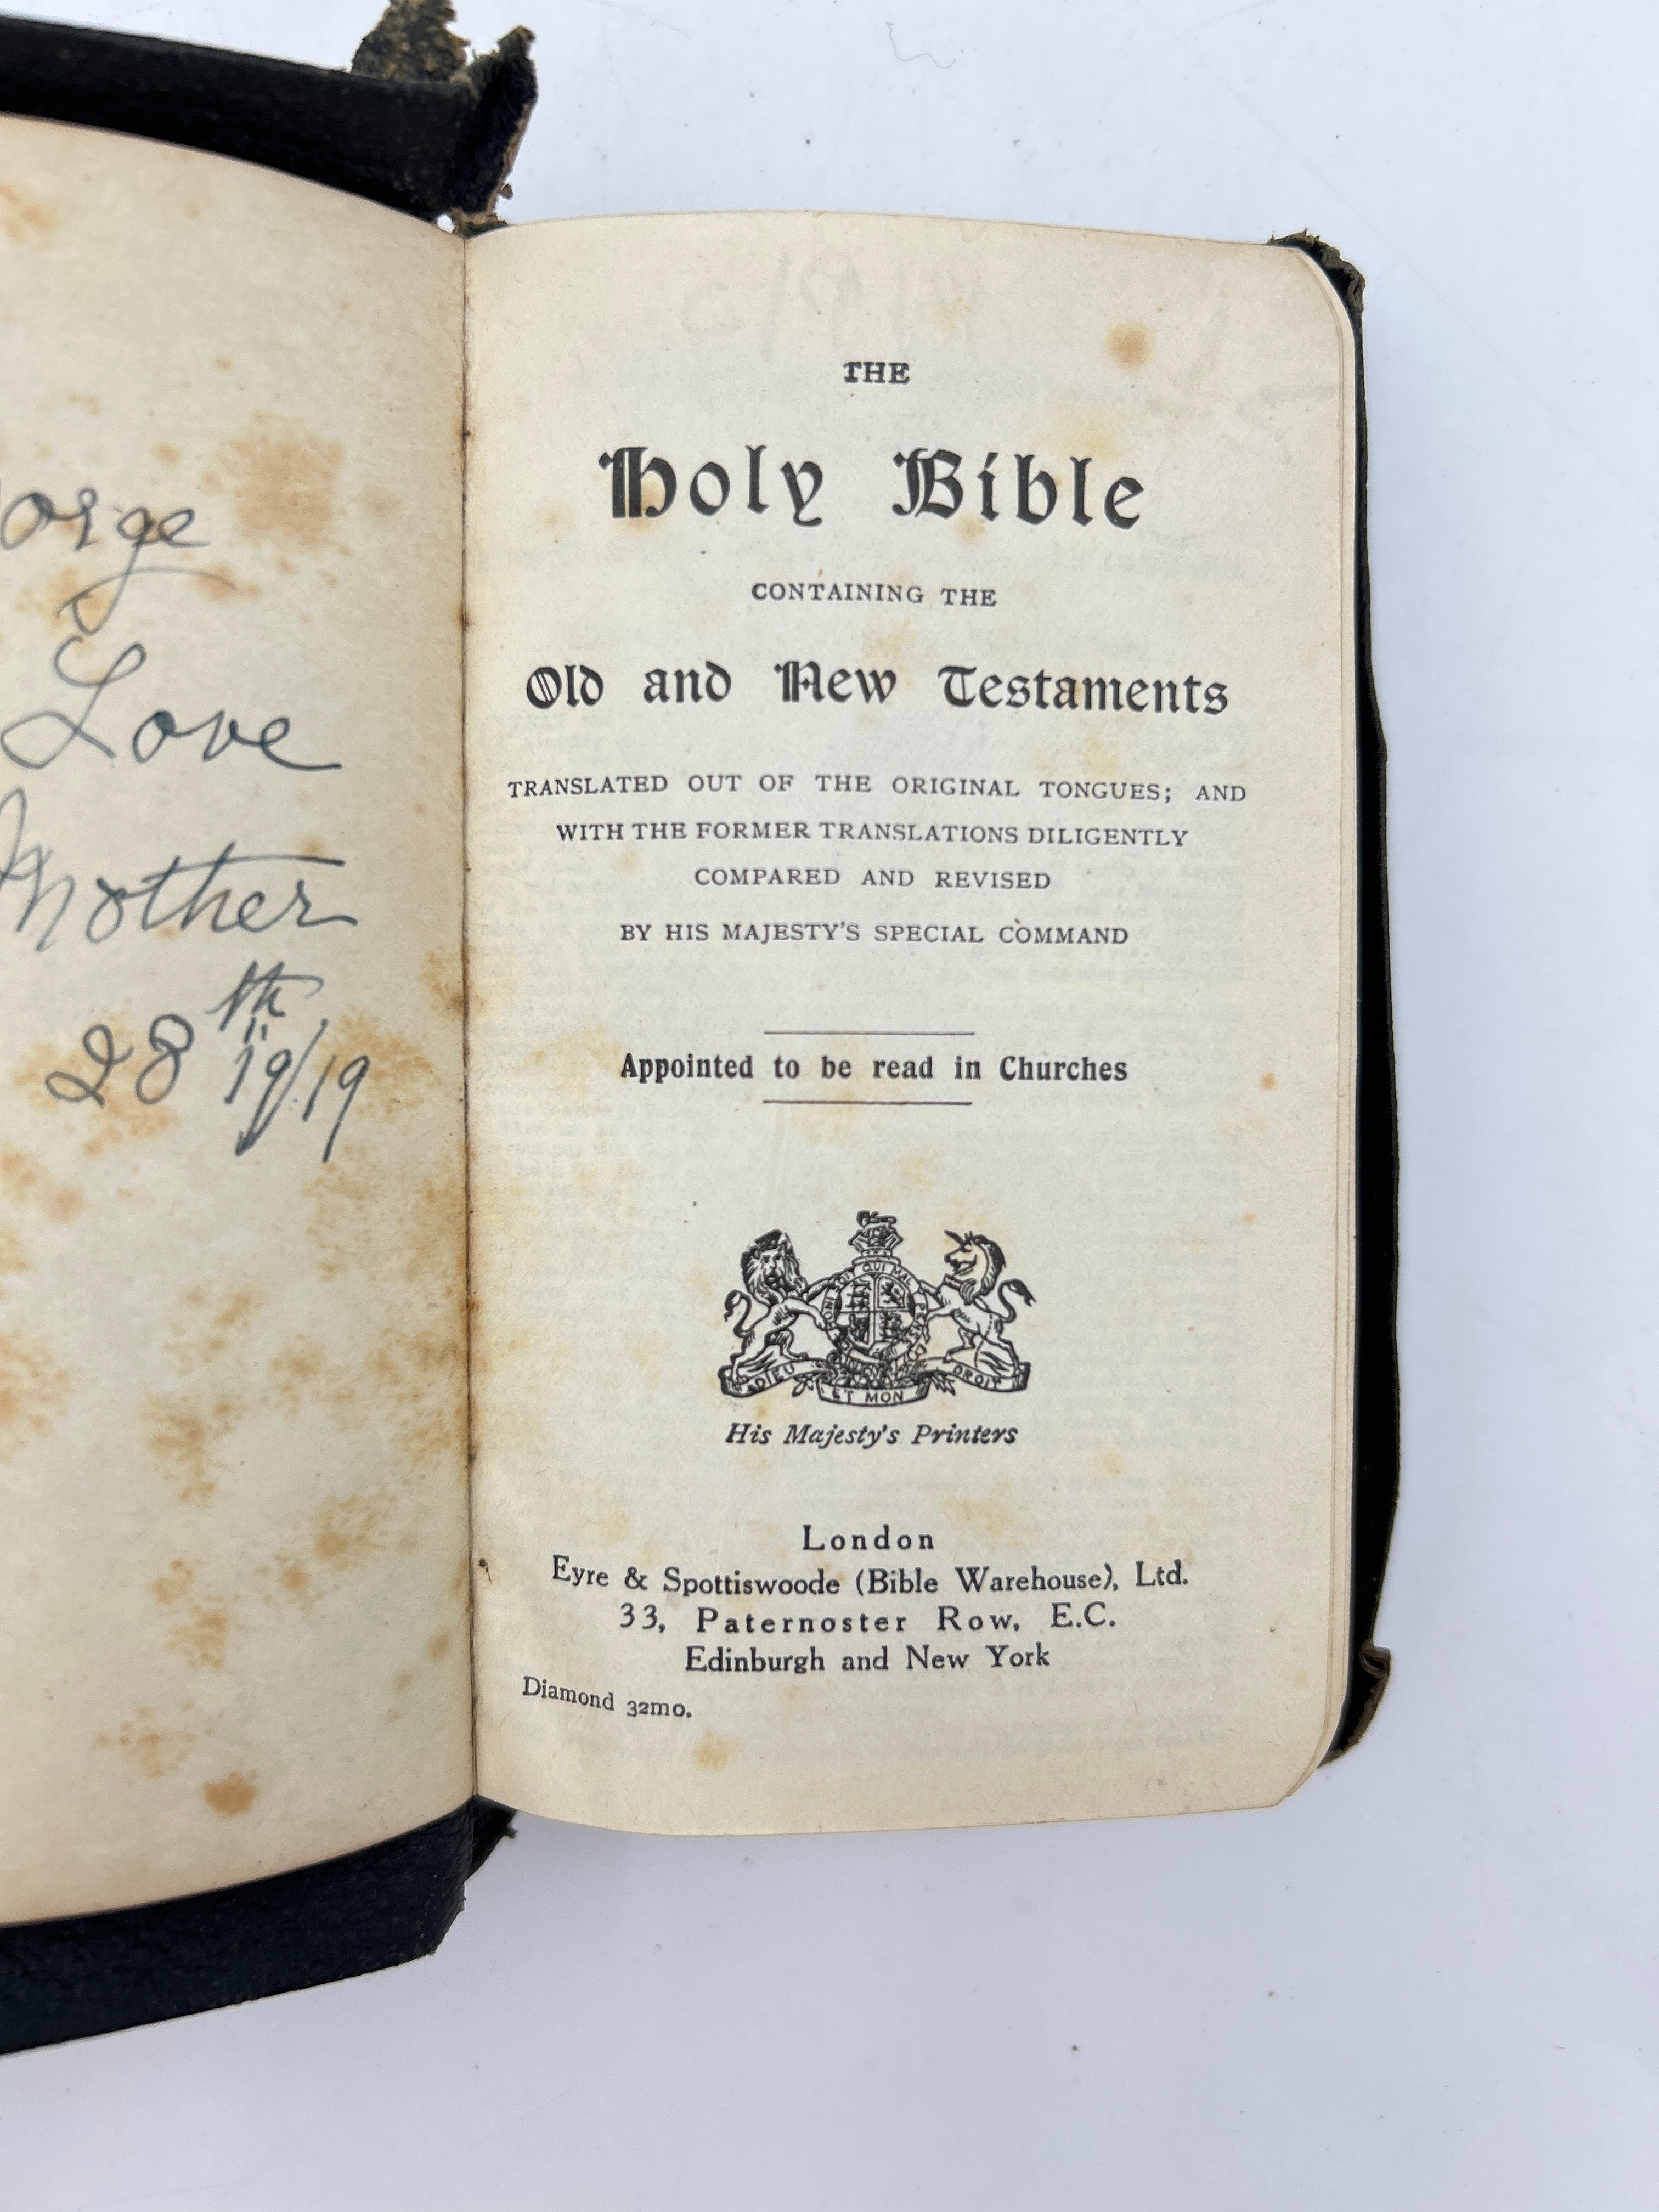 orge
Love
Mother
28th 19/19
THE
Holy Bible
CONTAINING THE
Old and New Testaments
TRANSLATED OUT OF THE ORIGINAL TONGUES; AND
WITH THE FORMER TRANSLATIONS DILIGENTLY
COMPARED AND REVISED
BY HIS MAJESTY'S SPECIAL COMMAND
Appointed to be read in Churches
DIEU ET MON DROIT
His Majesty's Printers
London
Eyre & Spottiswoode (Bible Warehouse), Ltd.
33, Paternoster Row, E.C.
Edinburgh and New York
Diamond 32mo.